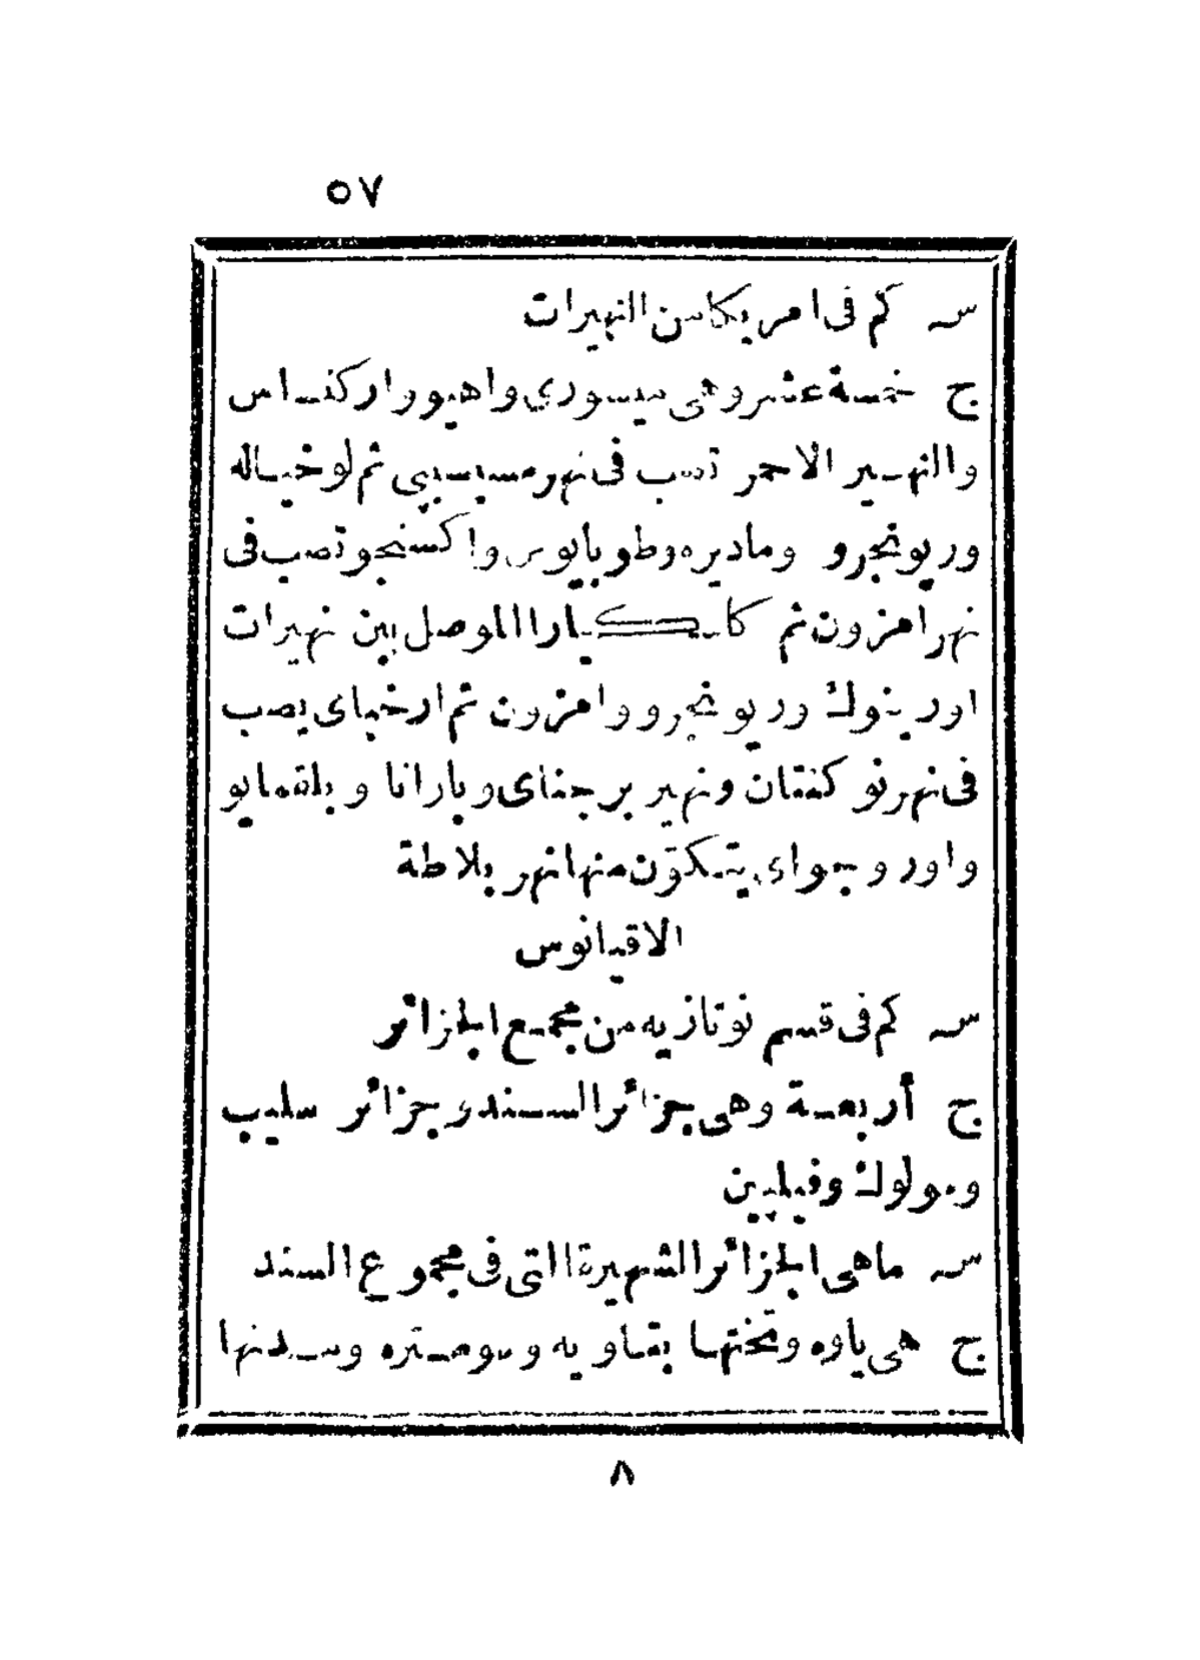 ٥٧
س كم فى امريكا من النهيرات
ج خمسة عشر وهى ميسورى واهيو واركنساس
والنهير الاحمر تصب فى نهر مسيسيپى ثم لوخياله
وريونجرو وماديره وطوبايوس واكسنجو تصب فى
نهر امزون ثم كاسكيارا الموصل بين نهيرات
اورينوك وريونجرو وامزون ثم ارخباى يصب
فى نهر نوكنتان ونهير برجناى وبارانا وبلقمايو
واوروجواى يتكوّن منها نهر بلاطة
الاقيانوس
س كم فى قسم نوتازيه من مجمع الجزائر
ج أربعة وهى جزائر السند وجزائر سليب
ومولوك وفيليبين
س ماهى الجزائر الشهيرة التى فى مجموع السند
ج هى ياوه وتختها بتاويه وسومتره ومدنها
٨